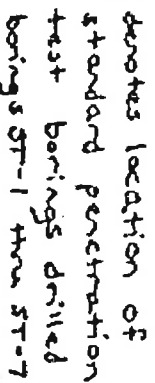 denotes location of
standard penetration
test borings drilled
borings ST-1 thru ST-7